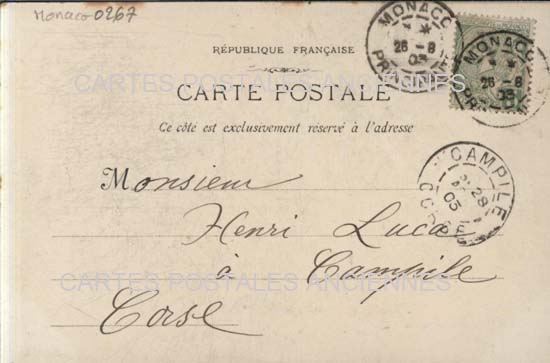 Monaco 0267
MONACO
PRINCIPAUTÉ
26 - 8
03
MONACO
PRINCIPAUTÉ
26 - 8
03
RÉPUBLIQUE FRANÇAISE
CARTES POSTALES ANCIENNES
CARTE POSTALE
Ce côté est exclusivement réservé à l'adresse
CAMPILE
28
03
CORSE
Monsieur
Henri Luca
à Campile
CARTES POSTALES ANCIENNES
Corse